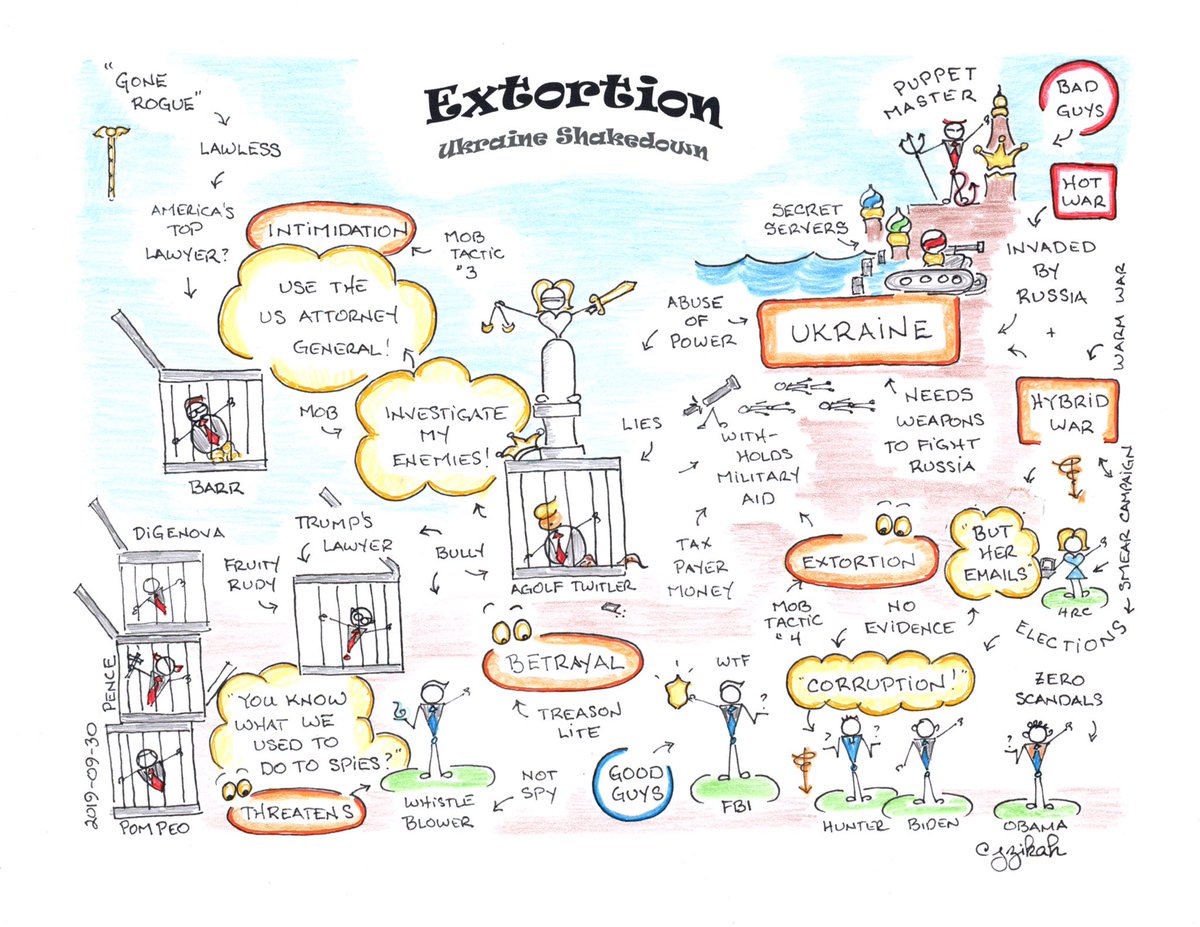 Extortion
Ukraine Shakedown
"GONE
ROGUE"
LAWLESS
AMERICA'S
TOP
LAWYER?
INTIMIDATION
MOB
TACTIC
#3
USE THE
US ATTORNEY
GENERAL!
MOB
INVESTIGATE
MY
ENEMIES!
BARR
PUPPET
MASTER
BAD
GUYS
HOT
WAR
SECRET
SERVERS
INVADED
BY
RUSSIA
+
WARM WAR
ABUSE
OF
POWER
UKRAINE
HYBRID
WAR
LIES
WITH-
HOLDS
MILITARY
AID
NEEDS
WEAPONS
TO FIGHT
RUSSIA
SMEAR CAMPAIGN
DIGENOVA
TRUMP'S
LAWYER
FRUITY
RUDY
BULLY
AGOLF TWITLER
TAX
PAYER
MONEY
EXTORTION
"BUT
HER
EMAILS"
HRC
MOB
TACTIC
#4
NO
EVIDENCE
ELECTIONS
PENCE
BETRAYAL
TREASON
LITE
WTF
"CORRUPTION!"
ZERO
SCANDALS
"YOU KNOW
WHAT WE
USED TO
DO TO SPIES?"
THREATENS
WHISTLE
BLOWER
NOT
SPY
GOOD
GUYS
FBI
?
?
?
HUNTER
BIDEN
?
?
OBAMA
POMPEO
2019-09-30
cjzikah